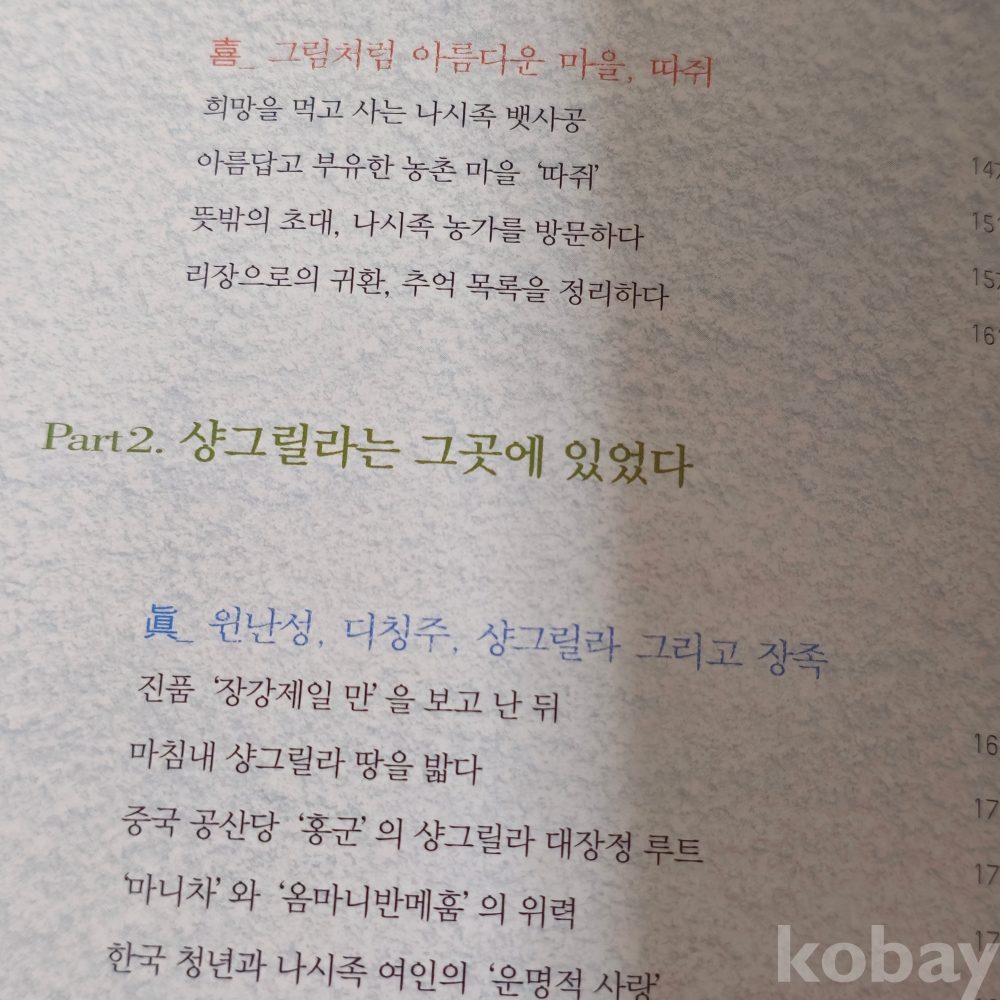 喜_ 그림처럼 아름다운 마을, 따쥐
희망을 먹고 사는 나시족 뱃사공
아름답고 부유한 농촌 마을 ‘따쥐’ 147
뜻밖의 초대, 나시족 농가를 방문하다 15
리장으로의 귀환, 추억 목록을 정리하다 157
161
Part 2. 샹그릴라는 그곳에 있었다
眞_ 윈난성, 디칭주, 샹그릴라 그리고 장족
진품 ‘장강제일 만’을 보고 난 뒤
마침내 샹그릴라 땅을 밟다 16
중국 공산당 ‘홍군’의 샹그릴라 대장정 루트 17
‘마니차’와 ‘옴마니반메훔’의 위력 17
한국 청년과 나시족 여인의 ‘운명적 사랑’ 17
kobay